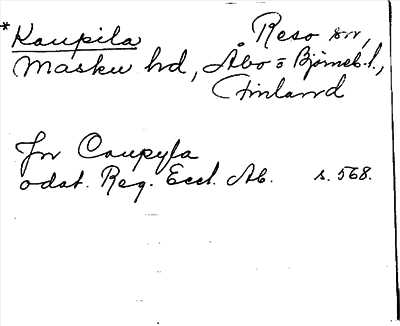 *Kaupila Reso sn,
Masku hd, Åbo o Björneb. l.,
Finland
Jn Caupyla
odat. Reg. Eccl. Ab. s. 568.